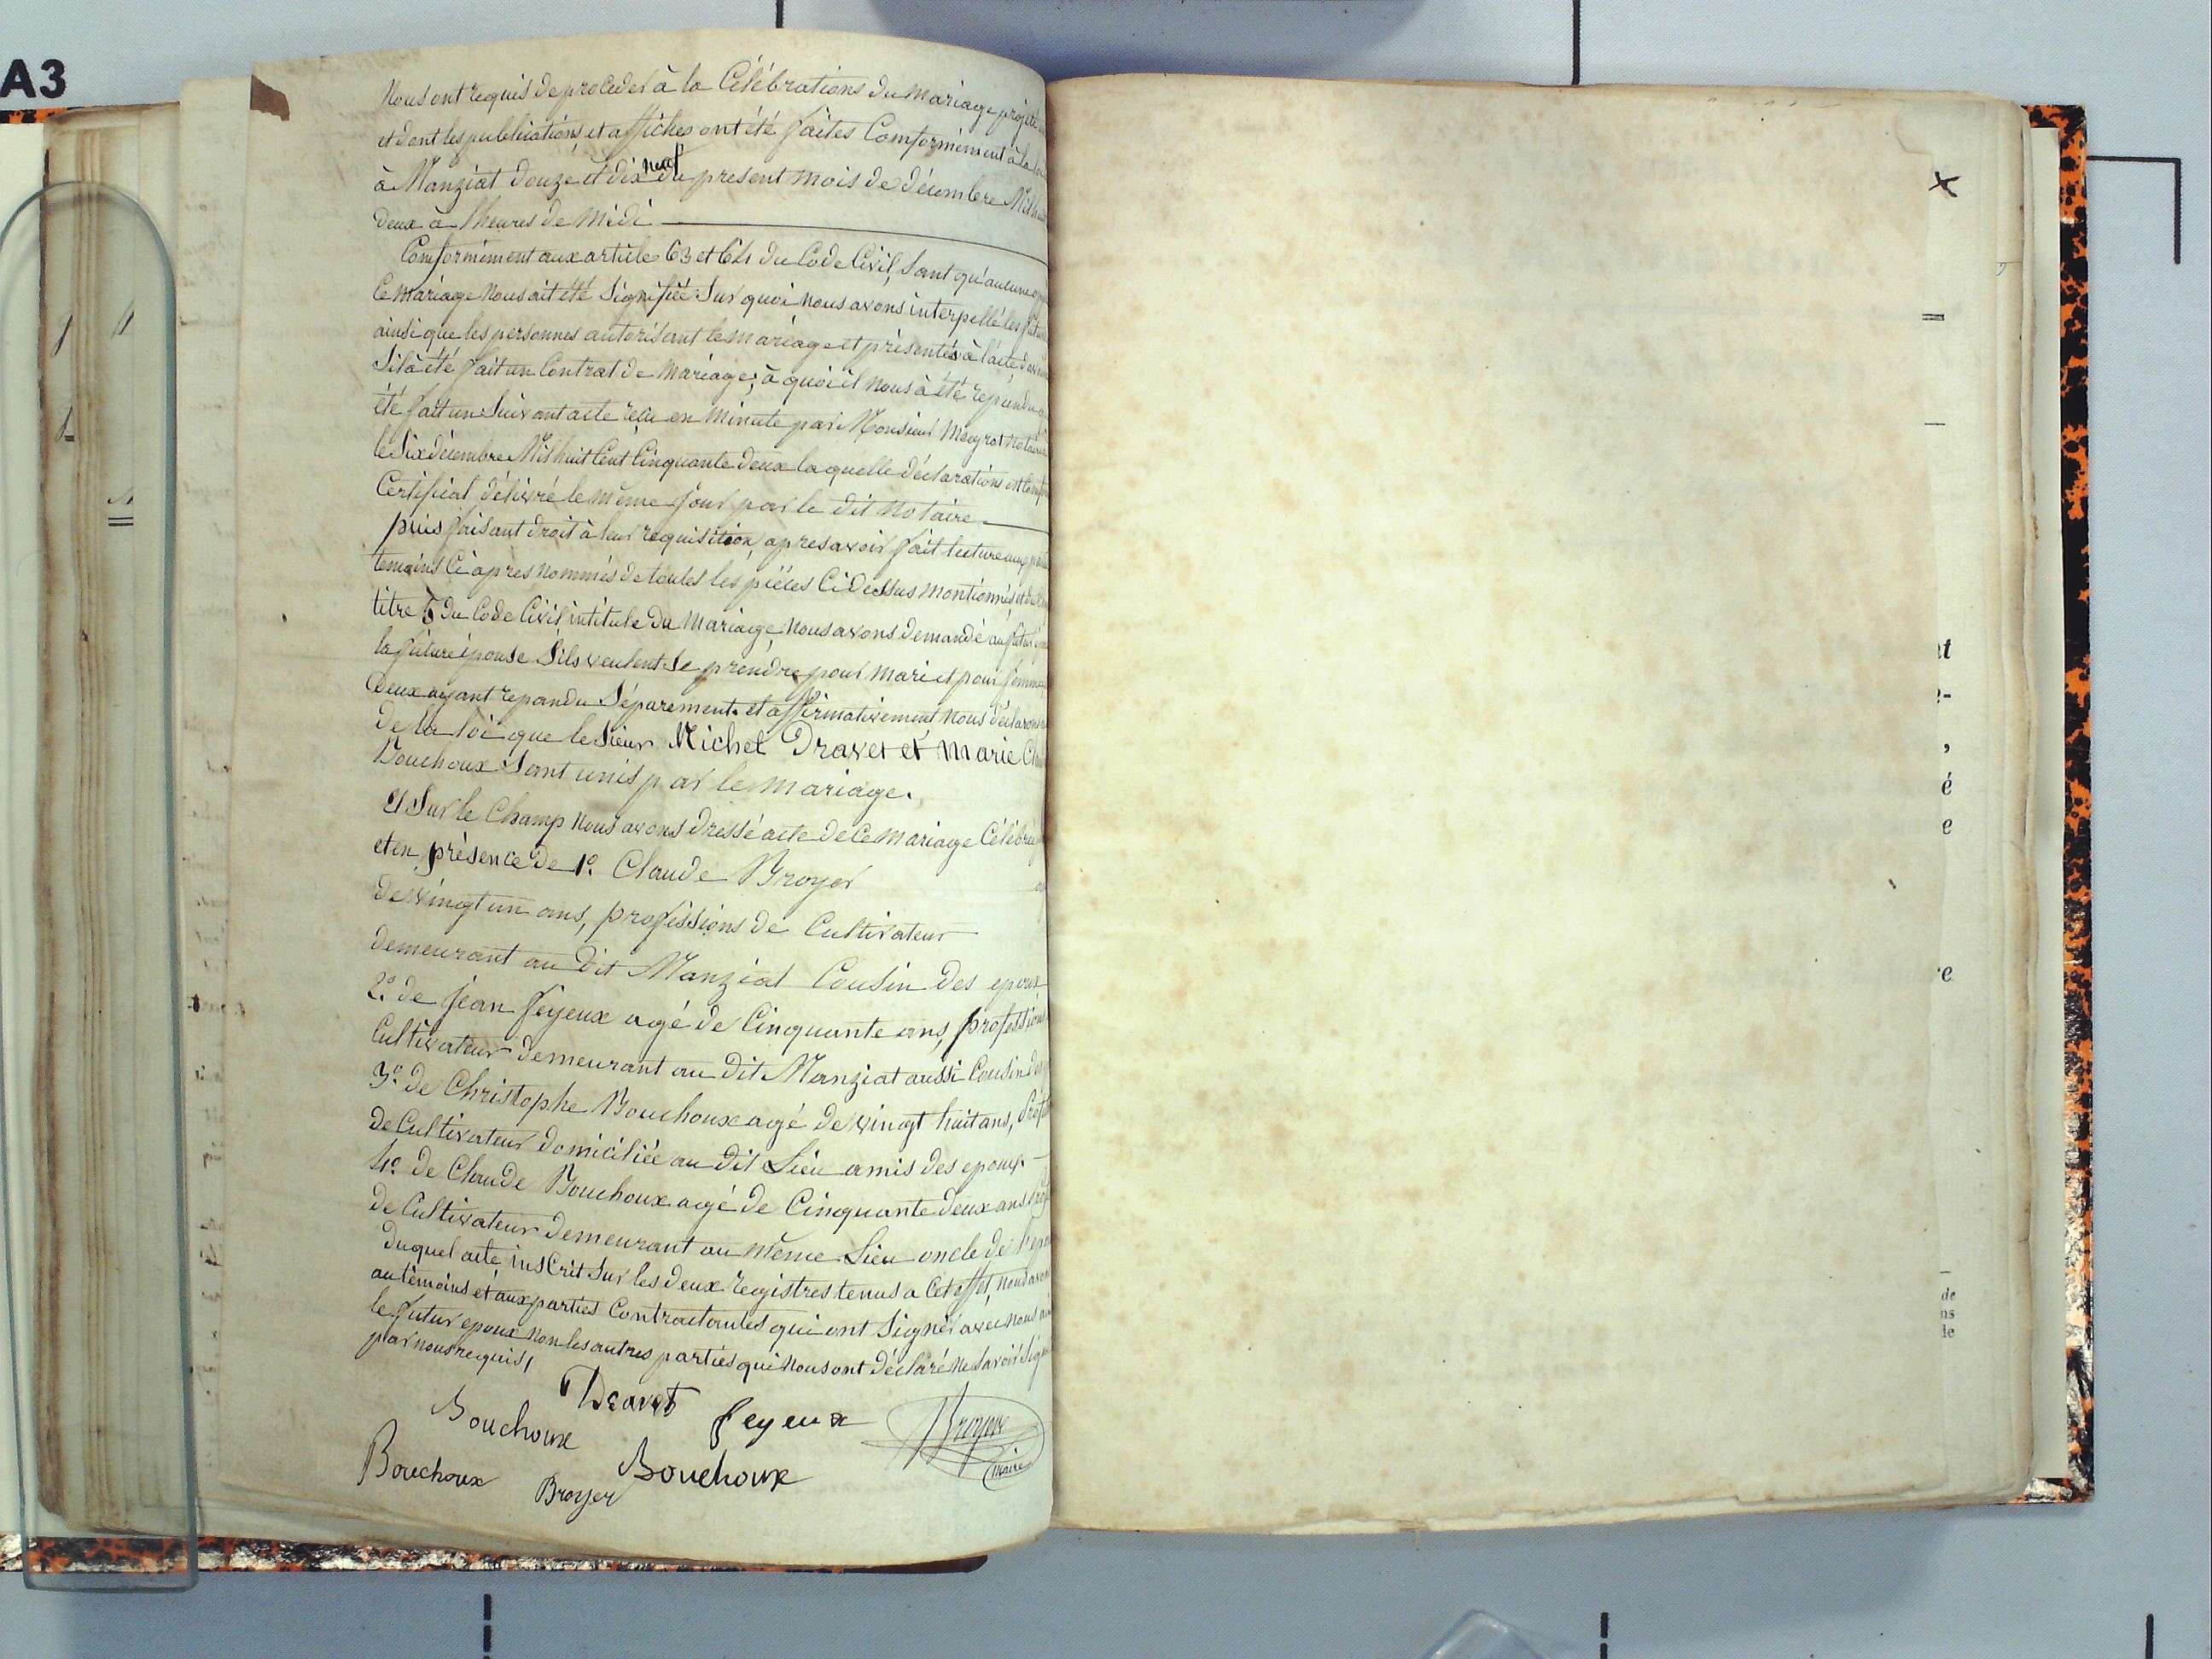 A3
Nous ont requis de proceder à la Célébrations du mariage projeté
et dont les publications, et affiches ont été faites Comformément à la loi
à Manziat douze et dix neuf du present mois de décembre Mil
deux à l'heures de midi
Comformement aux article 63 et 64 du Code Civil, Sant qu'aucune
Ce mariage Nous ait été Signifiée Sur quoi nous avons interpellé les
ainsi que les personnes autorisant le mariage et présentés à l'acte
S'il à été fait un Contrat de Mariage; à quoi il nous à été repondu
été fait un Suivant acte reçu en Minute par Monsieur Meyrat Notaire
le Six décembre Mil huit Cent Cinquante deux la quelle déclarations est
Certificat délivré le même Jour par le dit Notaire
puis faisant droit à leur requisition, apres avoir fait lecture aux
temoins Ci apres nommés de toutes les piéces Ci dessus montionnés et du
titre 5 du Code Civil intitule Du Mariage, Nous avons demandé au futur
la future épouse S'ils veulent Se prendre pour mari et pour femme,
deux ayant repondu Séparement et affirmativement, nous déclarons
de la loi que le Sieur Michel Dravet et Marie
Bouchoux Sont unis par le mariage.
Et Sur le Champ Nous avons dressé acte de Ce mariage Célébré
et en présence de 1° Claude Broyer
de vingt un ans, professions de Cultivateur
demeurant au dit Manziat Cousin des epoux
2° de Jean feyeux agé de Cinquante ans, professions
Cultivateur demeurant au dit Manziat aussi Cousin des
3° de Christophe Bouchoux agé de vingt huit ans,
de Cultivateur domiciliée au dit Lieu amis des epoux
4° de Claude Bouchoux agé de Cinquante deux ans
de Cultivateur demeurant au même Lieu oncle de
Duquel acte, insCrit Sur les deux registres tenus a Cet effet, nous avons
au témoins et aux parties Contractantes qui ont Signer avec nous
le futur epoux Non les autres parties qui Nous ont déclaré ne Savoir
par nous requis,
Dravet
Bouchoux feyeux Broyer
maire
Bouchoux Broyer Bouchoux